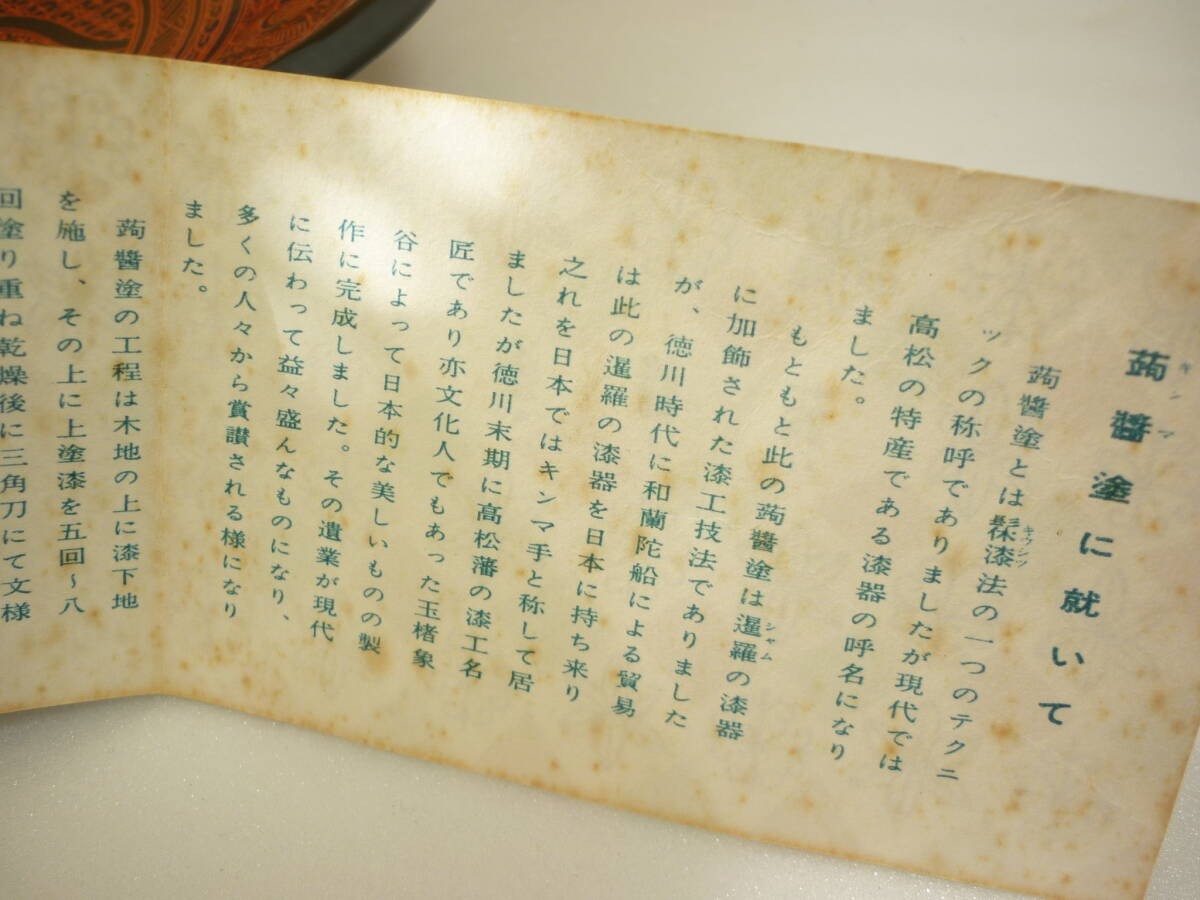 蒟醬塗に就いて
キンマ
蒟醬塗とは髹漆法の一つのテクニ
キウシツ
ックの称呼でありましたが現代では
高松の特産である漆器の呼名になり
ました。
もともと此の蒟醬塗は暹羅の漆器
シャム
に加飾された漆工技法でありました
が、徳川時代に和蘭陀船による貿易
は此の暹羅の漆器を日本に持ち来り
之れを日本ではキンマ手と称して居
ましたが徳川末期に高松藩の漆工名
匠であり亦文化人でもあった玉楮象
谷によって日本的な美しいものの製
作に完成しました。その遺業が現代
に伝わって益々盛んなものになり、
多くの人々から賞讃される様になり
ました。
蒟醬塗の工程は木地の上に漆下地
を施し、その上に上塗漆を五回～八
回塗り重ね乾燥後に三角刀にて文様